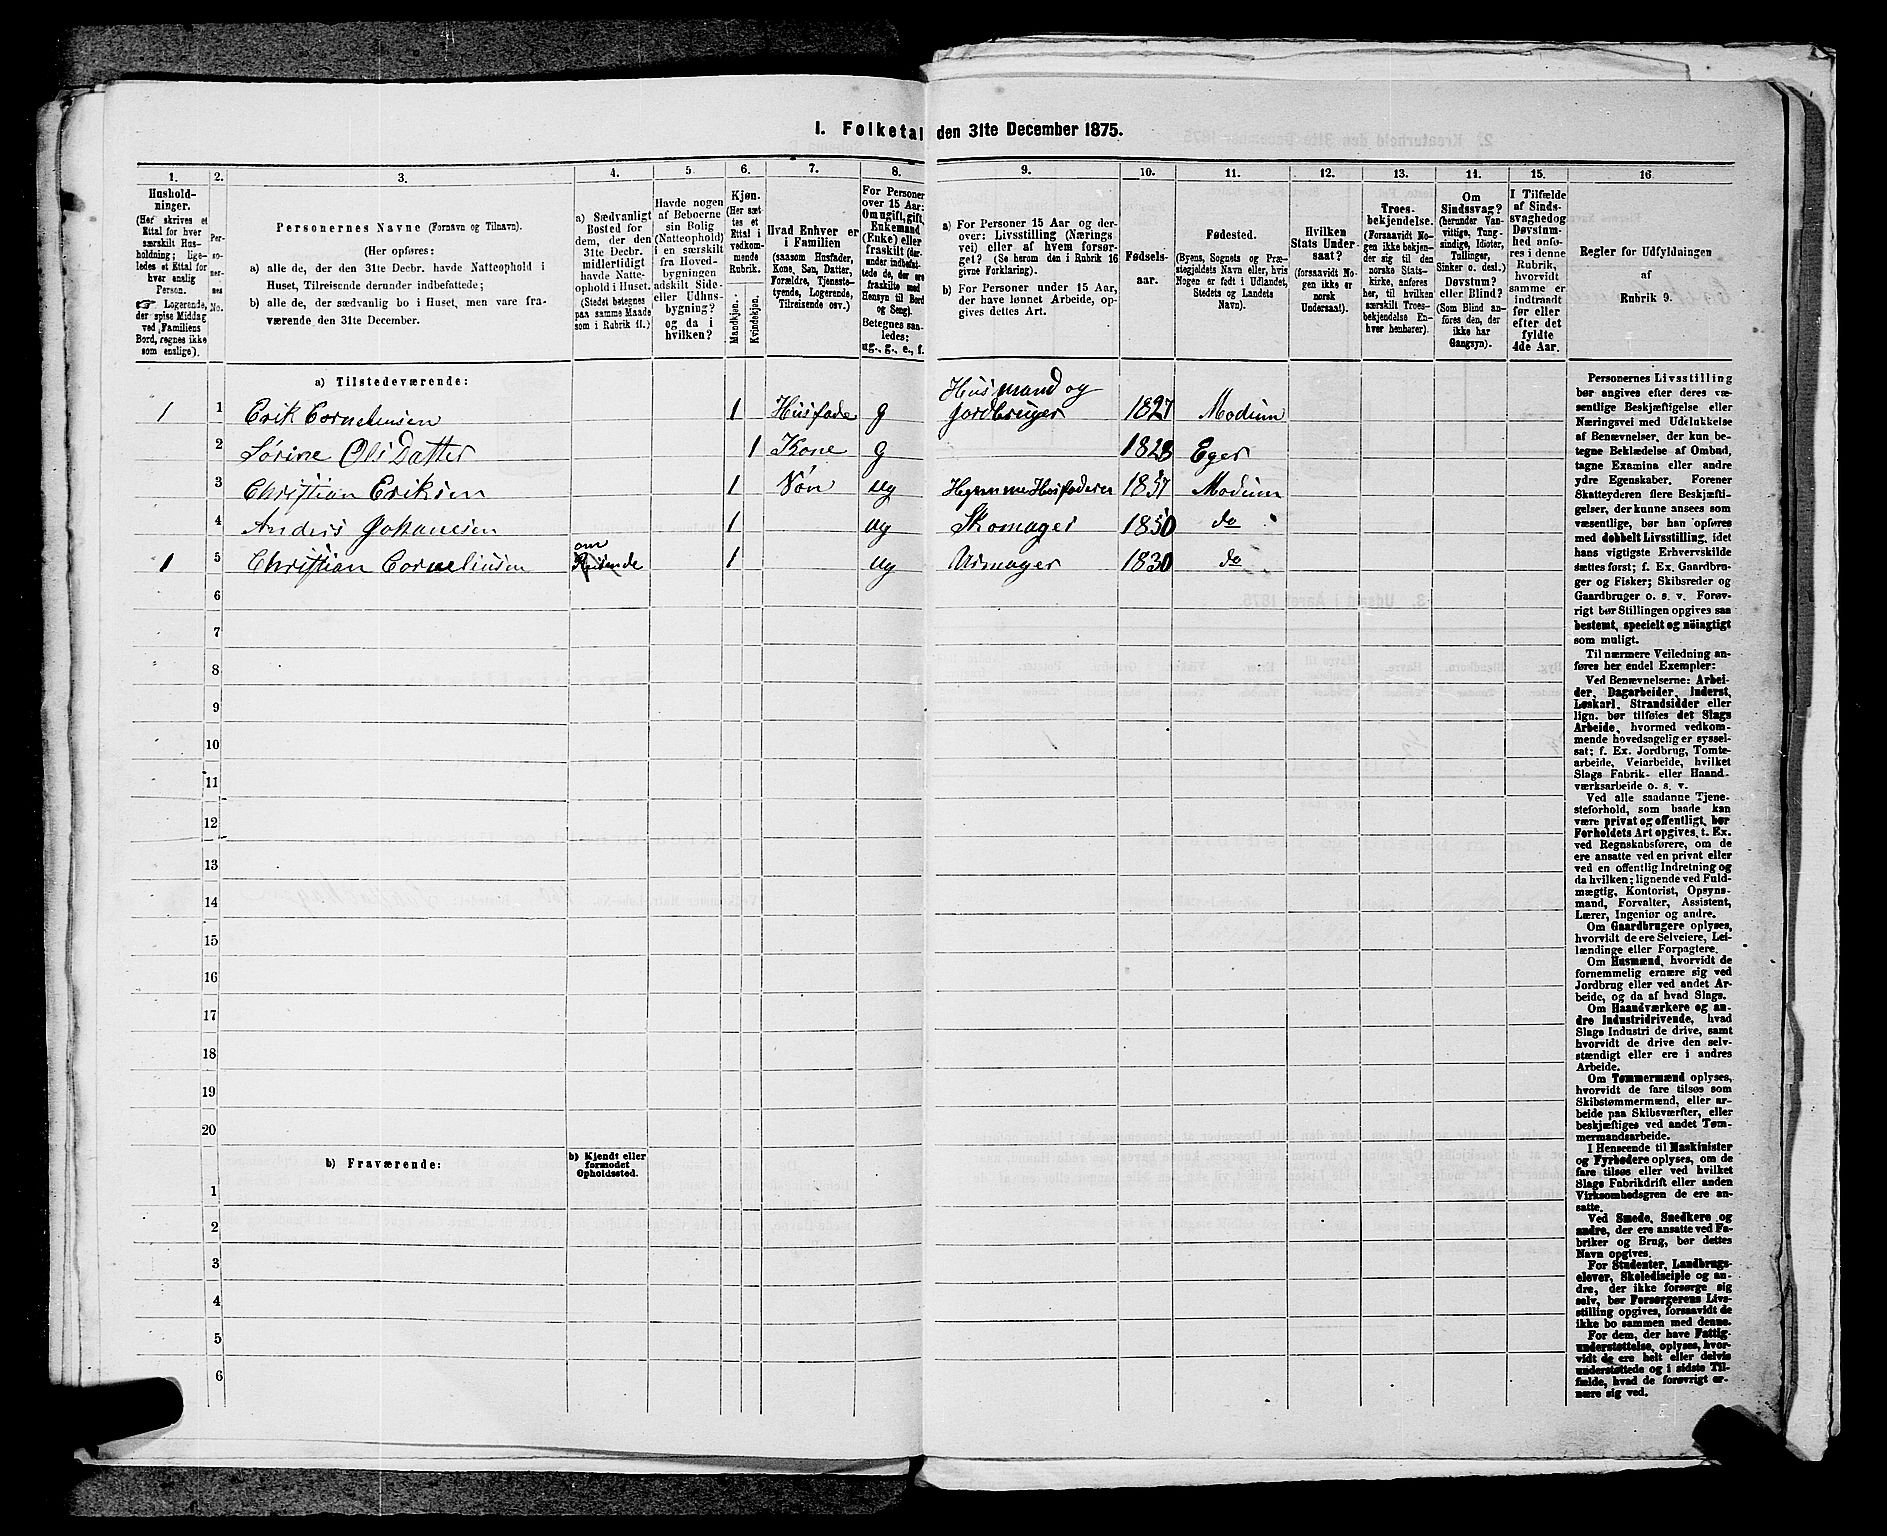 I. Folketal den 31te December 1875.
1. 2. 3. 4. 5. 6. 7. 8. 9. 10. 11. 12. 13. 14. 15. 16
Husholdninger.
(Her skrives et
Ettal for hver
særskilt Husholdning; ligeledes
et Ettal for
hver enslig
Person.
☞ Logerende,
der spise Middag
ved Familiens
Bord, regnes ikke
som enslige).
Personernes No.
Personernes Navne (Fornavn og Tilnavn).
(Her opføres:
a) alle de, der den 31te Decbr. havde Natteophold i
Huset, Tilreisende derunder indbefattede;
b) alle de, der sædvanlig bo i Huset, men vare fraværende
den 31te December.
a) Sædvanligt
Bosted for
dem, der den
31te Decbr.
midlertidigt
havde Natteophold
i Huset.
(Stedet betegnes
paa samme Maade
som i Rubrik 11.)
Havde nogen
af Beboerne
sin Bolig
(Natteophold)
i en særskilt
fra Hovedbygningen
adskilt Side-
eller Udhusbygning?
og da i
hvilken?
Kjøn.
(Her sættes
et
Ettal i
vedkommende
Rubrik.
Mandkjøn.
Kvindekjøn.
Hvad Enhver er
i Familien
(saasom Husfader,
Kone, Søn, Datter,
Forældre, Tjenestetyende,
Logerende,
Tilreisende osv.)
For Personer
over 15 Aar:
Om ugift, gift,
Enkemand
(Enke) eller
fraskilt (derunder
indbefattede
de, der ere
fraskilte med
Hensyn til Bord
og Seng).
Betegnes saaledes:
ug., g., e., f.
a) For Personer 15 Aar og derover:
Livsstilling (Næringsvei)
eller af hvem forsørget?
(Se herom den i Rubrik 16
givne Forklaring).
b) For Personer under 15 Aar,
der have lønnet Arbeide, opgives
dettes Art.
Fødselsaar.
Fødested.
(Byens, Sognets og Præstegjeldets
Navn eller, hvis
Nogen er født i Udlandet,
Stedets og Landets
Navn).
Hvilken
Stats Undersaat?
(forsaavidt Nogen
ikke er
norsk
Undersaat).
Troesbekjendelse.
(Forsaavidt Nogen
ikke bekjender
sig til den
norske Statskirke,
anføres
her, til hvilken
særskilt Troesbekjendelse
Enhver
henhører).
Om
Sindssvag?
(herunder Vanvittige,
Tungsindige,
Idioter,
Tullinger,
Sinker o. desl.)
Døvstum?
eller Blind?
(Som Blind anføres
den, der
ikke har
Gangsyn).
I Tilfælde
af Sindssvaghed
og
Døvstumhed
anføres
i denne
Rubrik,
hvorvidt
samme er
indtraadt
før eller
efter det
fyldte
4de Aar.
Regler for Udfyldningen
af
Rubrik 9.
a) Tilstedeværende:
1 1 Erik Cornelusen 1 Husfade g Husmand og Jordbruger 1827 Modum
2 Sørine Ols Datter 1 Kone g 1828 Eger
3 Christian Eriksen 1 Søn ug Hjemme Husfaderen 1857 Modum
4 Anders Johanesen 1 ug Skomager 1850 do
1 5 Christian Corneliusen om Reisende 1 ug Urmager 1830 do
6
7
8
9
10
11
12
13
14
15
16
17
18
19
20
b) Fraværende:
b) Kjendt eller
formodet
Opholdssted.
1
2
3
4
5
6
Personernes Livsstilling
bør angives efter deres væsentlige
Beskjæftigelse eller
Næringsvei med Udelukkelse
af Benævnelser, der kun betegne
Beklædelse af Ombud,
tagne Examina eller andre
ydre Egenskaber. Forener
Skatteyderen flere Beskjæftigelser,
der kunne ansees som
væsentlige, bør han opføres
med dobbelt Livsstilling, idet
hans vigtigste Erhvervskilde
sættes først; f. Ex. Gaardbruger
og Fisker; Skibsreder og
Gaardbruger o. s. v. Forøvrigt
bør Stillingen opgives saa
bestemt, specielt og nøiagtigt
som muligt.
Til nærmere Veiledning anføres
her endel Exempler:
Ved Benævnelserne: Arbeider,
Dagarbeider, Inderst,
Løskarl, Strandsidder eller
lign. bør tilføies det Slags
Arbeide, hvormed vedkommende
hovedsagelig er sysselsat;
f. Ex. Jordbrug, Tomtearbeide,
Veiarbeide, hvilket
Slags Fabrik- eller Haandværksarbeide
o. s. v.
Ved alle saadanne Tjenesteforhold,
som baade kan
være privat og offentligt, bør
Forholdets Art opgives, t. Ex.
ved Regnskabsførere, om de
ere ansatte ved en privat eller
ved en offentlig Indretning og
da hvilken; lignende ved Fuldmægtig,
Kontorist, Opsynsmand,
Forvalter, Assistent,
Lærer, Ingeniør og andre.
Om Gaardbrugere oplyses,
hvorvidt de ere Selveiere, Leilændinge
eller Forpagtere.
Om Husmænd, hvorvidt de
fornemmelig ernære sig ved
Jordbrug eller ved andet Arbeide,
og da af hvad Slags.
Om Haandværkere og andre
Industridrivende, hvad
Slags Industri de drive, samt
hvorvidt de drive den selvstændigt
eller ere i andres
Arbeide.
Om Tømmermænd oplyses,
hvorvidt de fare tilsøs som
Skibstømmermænd, eller arbeide
paa Skibsværfter, eller
beskjæftiges ved andet Tømmermandsarbeide.
I Henseende til Maskinister
og Fyrbødere oplyses, om de
fare tilsøs eller ved hvilket
Slags Fabrikdrift eller anden
Virksomhedsgren de ere ansatte.
Ved Smede, Snedkere og
andre, der ere ansatte ved Fabriker
og Brug, bør dettes
Navn opgives.
For Studenter, Landbrugselever,
Skoledisciple og andre,
der ikke forsørge sig
selv, bør Forsørgerens Livsstilling
opgives, forsaavidt de
ikke bo sammen med denne.
For dem, der have Fattigunderstøttelse,
oplyses, hvorvidt
de ere helt eller delvis
understøttede og i sidste Tilfælde,
hvad de forøvrigt ernære
sig ved.